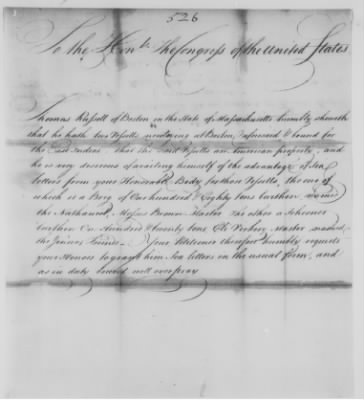 526
To the Honble. the Congress of the United States
Thomas Russell of Boston in the State of Massachusetts humbly sheweth
that he hath two Vessells now lying at Boston, & bound for
the East Indies, that the said Vessells are American property, and
he is very desirous of availing himself of the advantage of Sea
letters from your Honorable Body for those Vessells, the one of
which is a Brig of One hundred & Eighty tons burthen named
the Nathaniel, Master the other a Schooner
burthen One Hundred & twenty tons Master named
the Your Petitioner therefore humbly requests
your Honors to grant him Sea letters in the usual form, and
as in duty bound will ever pray